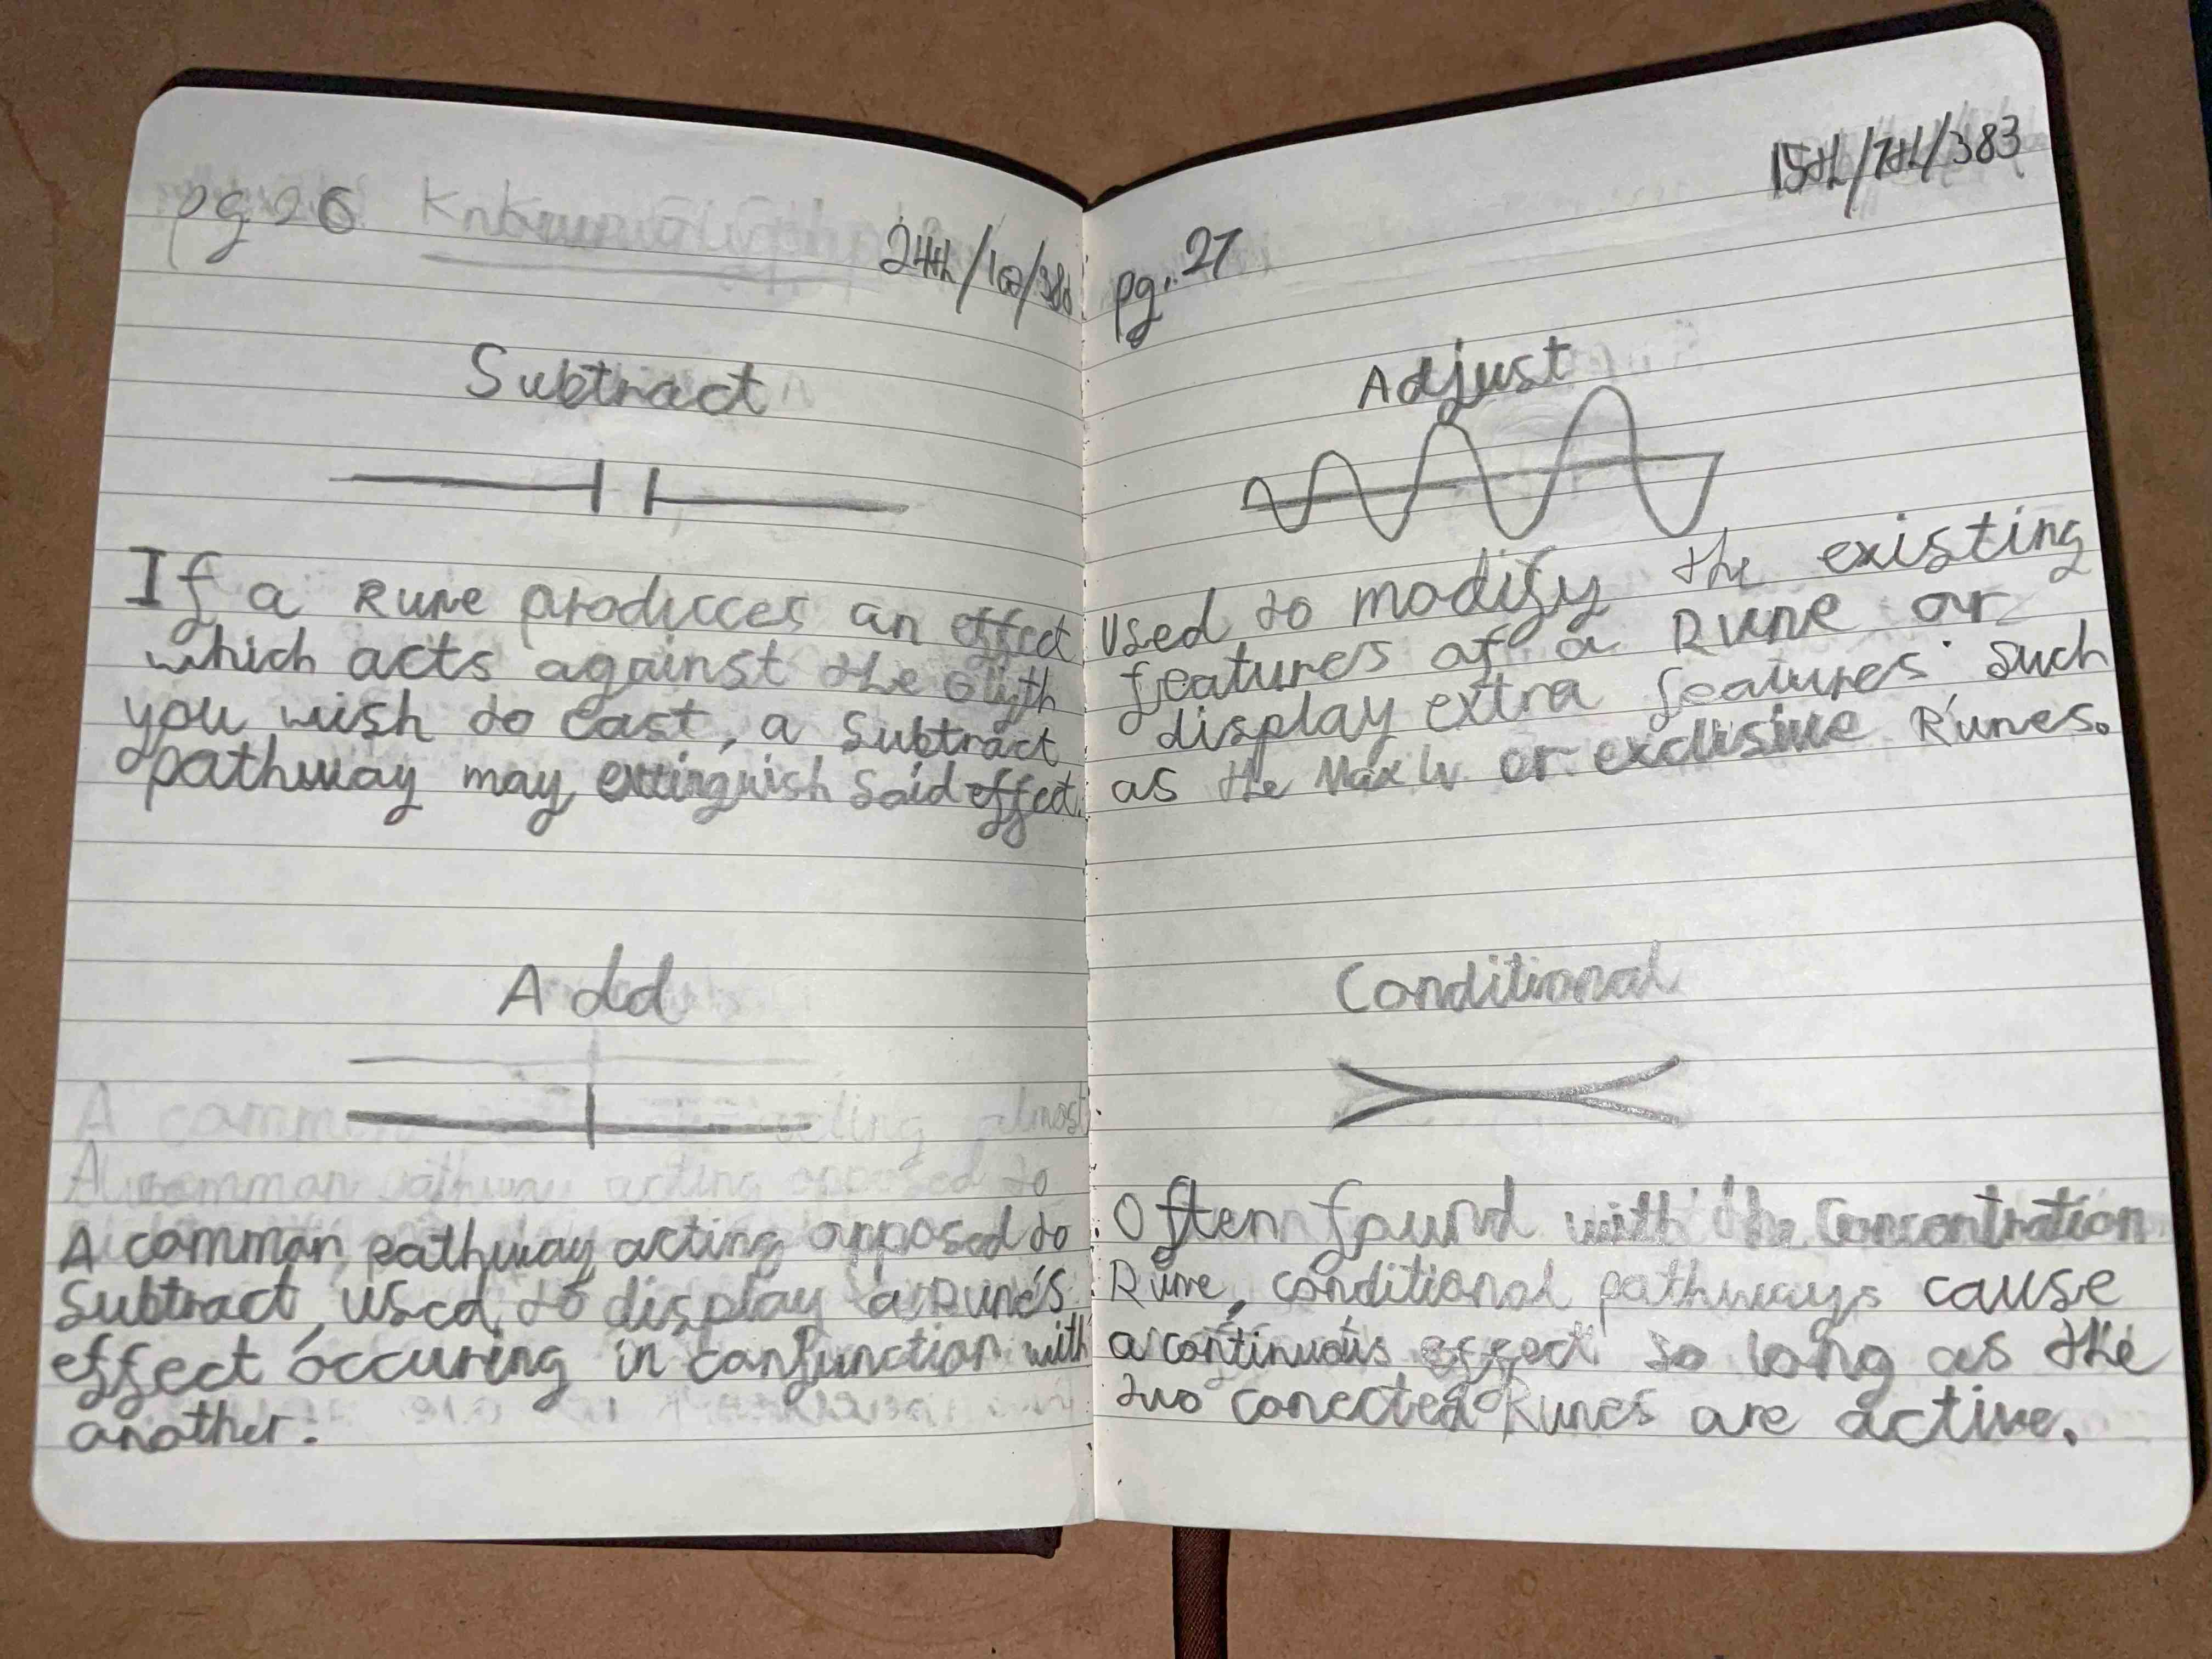 pg 26
24th/10/380
Subtract
If a Rune produces an effect
which acts against the Glyth
you wish to cast, a subtract
pathway may extinguish said effect.
Add
A common acting almost
A common pathway acting opposed to
A common pathway acting opposed to
Subtract, used to display a Rune's
effect occuring in conjunction with
another.
15th/7th/383
pg. 27
Adjust
Used to modify the existing
features of a Rune or
display extra features such
as the Max lv or exclusive Runes.
Conditional
Often found with the Concontration
Rune, conditional pathways cause
a continuous effect so long as the
two conected Runes are active.